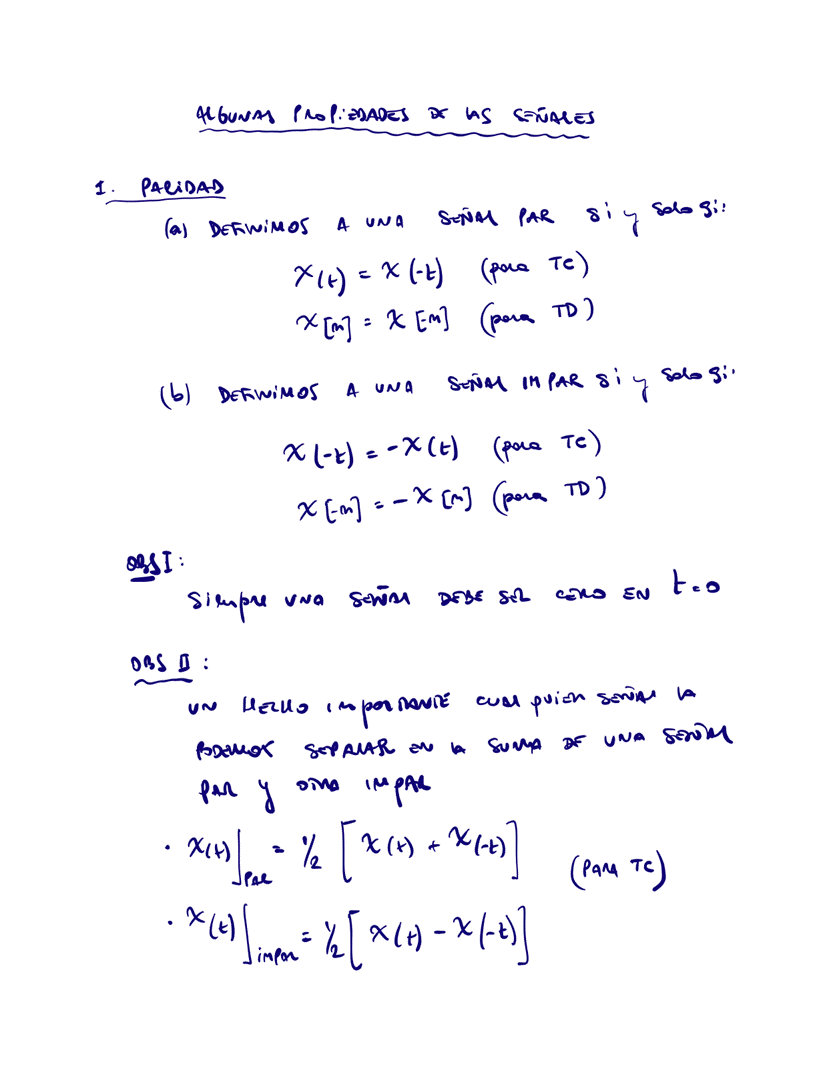 ALGUNAS PROPIEDADES DE LAS SEÑALES
1. PARIDAD
(a) DEFINIMOS A UNA SEÑAL PAR si y solo si:
x(t) = x(-t) (para TC)
x[n] = x[-n] (para TD)
(b) DEFINIMOS A UNA SEÑAL IMPAR si y solo si:
x(-t) = -x(t) (para TC)
x[-n] = -x[n] (para TD)
OBS I:
Siempre UNA SEÑAL DEBE SER CERO EN t=0
OBS II:
UN HECHO IMPORTANTE CUALQUIER SEÑAL LA
PODEMOS SEPARAR EN LA SUMA DE UNA SEÑAL
PAR y OTRA IMPAR
· x(t)]PAR = 1/2 [x(t) + x(-t)] (PARA TC)
· x(t)]impar = 1/2 [x(t) - x(-t)]